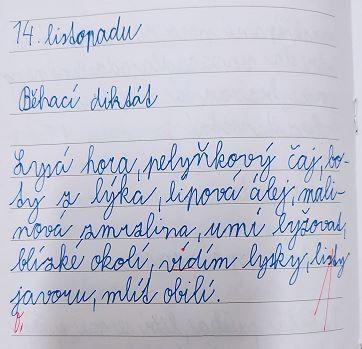 14. listopadu
Běhací diktát
Lysá hora, pelyňkový čaj, bo-
ty z lýka, lipová álej, mali-
nová zmrzlina, umí lyžovat,
blízké okolí, vidím lysky, listy
javoru, mlít obilí.